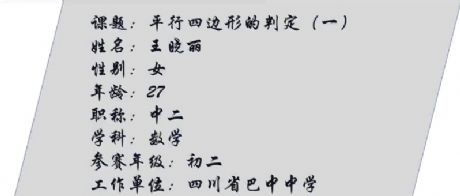 课题：平行四边形的判定（一）
姓名：王晓丽
性别：女
年龄：27
职称：中二
学科：数学
参赛年级：初二
工作单位：四川省巴中中学